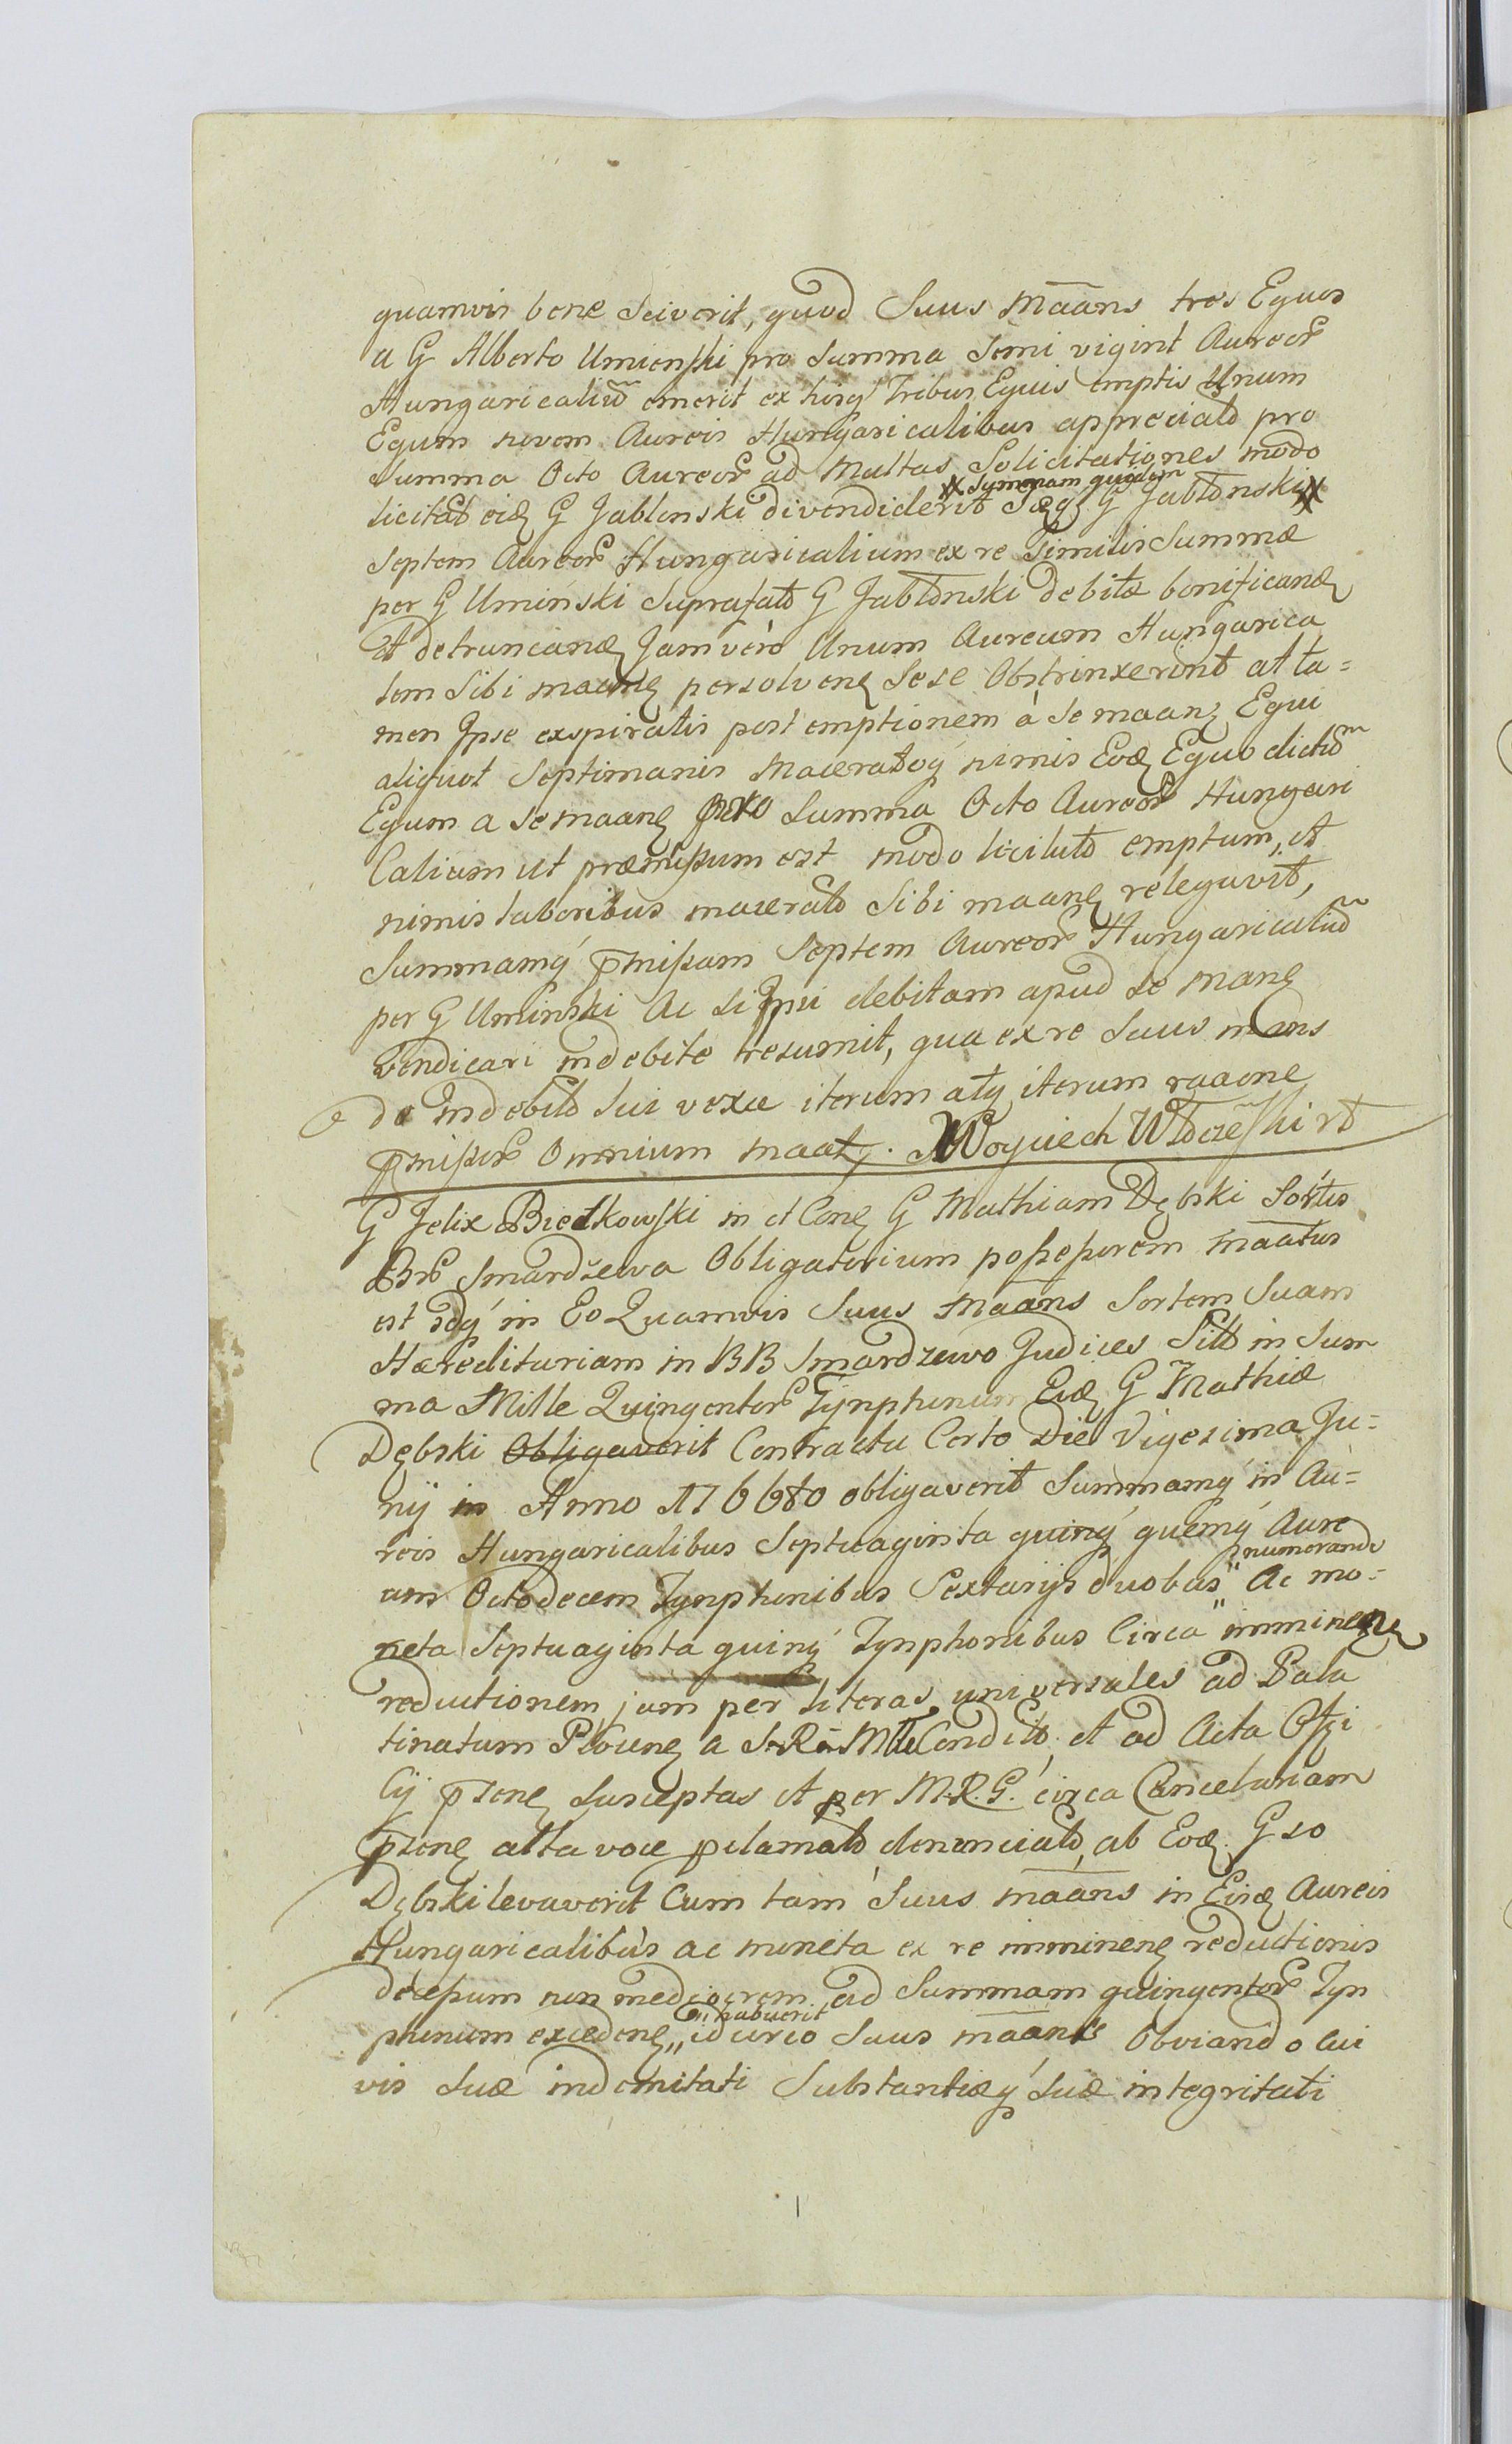 quamvis bene sciverit, quod Suus Maãns tres Equos
a G Alberto Umienski pro Summa Semi vigint Aureor
Hungaricaliũ emerit ex hisq Tribus Equis emptis Unum
Equum novem Aureis Hungaricalibus appreciatõ pro
Summa Octo Aureor ad Multas Solicitationes modo
licitatõ eid G Jablonski divendiderit G Jablonski
Summam quidem
Septem Aureor Hungaricalium ex re similis Summæ
per G Uminski Suprafatõ G Jablonski debitæ bonificand
et detruncand Jam vero Unum Aureum Hungarica
lem Sibi maanẽ persolvend Sese Obstrinxerint at ta=
men Ipse expiratis post emptionem à Se maanẽ Equi
aliquot Septimanis Maceratoq nimis Eod Equo dictũ
Equum a Se maanẽ pro Summa Octo Aureor Hungari
Calium ut præmissum est modo licitatõ emptum, et
nimis laboribus maceratõ Sibi maanẽ relegavit,
Summamq pmissam Septem Aureor Hungaricaliũ
per G Uminski Ac si Ipsi debitam apud Se manẽ
vendicari indebite tresumit, qua ex re Suus mans
de indebitõ Sui vexa iterum atq iterum raaone
pmissor Omnium maat. Woyciech Włoczeski rt
G Felix Biedkowski in et Conẽ G Mathiam Dębski Sortis
BB Smardzewa Obligatorium possessorem maãtus
est idq in Eo Quamvis Suus Maãns Sortem Suam
Hæreditariam in BB Smardzewo Judices Sitõ in Sum
ma Mille Quingentor Tynphonum Eid G Mathiæ
Dębski Obligaverit Contractu Certo Die Vigesima Ju=
nij in Anno 176680 obligaverit Summamq in Au=
reis Hungaricalibus Septuaginta quinq quemq Aure
um Octodecem Tynphonibus Sextarijs duobus " Ac mo=
numerando
neta Septuaginta quinq Tynphonibus Circa " imminenẽ
reductionem jam per literas universales ad Pala
tinatum Płocenẽ a S R M Conditõ et ad Acta Offi
Cij psenẽ Susceptas et per M.R.G. circa Cancelariam
psenẽ alta voce pclamatõ denunciatõ, ab Eod Gso
Dębski levaverit Cum tam Suus maãns in Eisd Aureis
Hungaricalibus ac moneta ex re imminenẽ reductionis
decessum non mediocrem ad Summam quingentor Tyn
phonum excedenẽ " idcirco Suus maãns Obviando cui
" habuerit
vis Suæ indemitati Substantiæq Suæ integritati